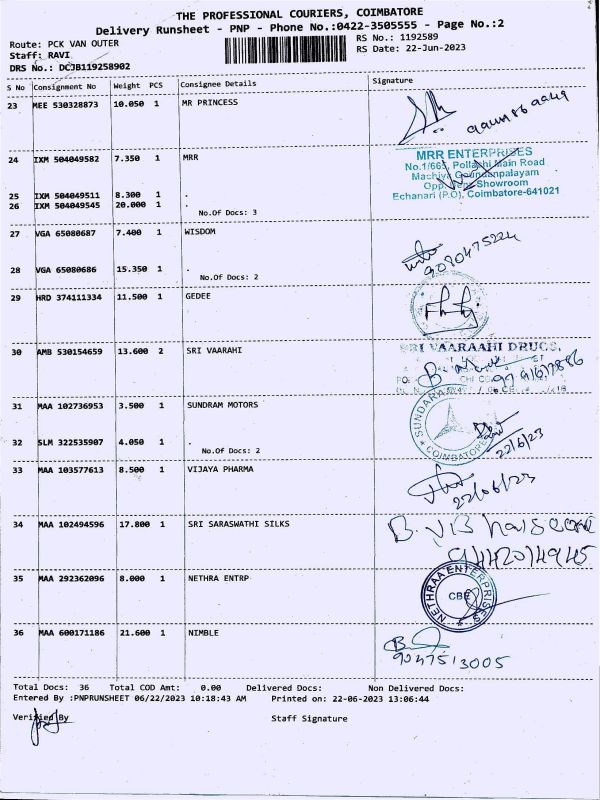 THE PROFESSIONAL COURIERS, COIMBATORE
Delivery Runsheet - PNP - Phone No.:0422-3505555 - Page No.:2
Route: PCK VAN OUTER
RS No.: 1192589
Staff: RAVI
RS Date: 22-Jun-2023
DRS No.: DCJB119258902
S No Consignment No Weight PCS Consignee Details Signature
23 MEE 530328873 10.050 1 MR PRINCESS
24 IXM 504049582 7.350 1 MRR
MRR ENTERPRISES
No.1/665, Pollachi Main Road
Machiya Goundenpalayam
Opp. Showroom
Echanari (P.O), Coimbatore-641021
25 IXM 504049511 8.300 1 .
26 IXM 504049545 20.000 1 .
No.Of Docs: 3
27 VGA 65080687 7.400 1 WISDOM
28 VGA 65080686 15.350 1 .
No.Of Docs: 2
29 HRD 374111334 11.500 1 GEDEE
30 AMB 530154659 13.600 2 SRI VAARAHI
SRI VAARAAHI DRUGS,
31 MAA 102736953 3.500 1 SUNDRAM MOTORS
32 SLM 322535907 4.050 1 .
No.Of Docs: 2
COIMBATORE
22/6/23
33 MAA 103577613 8.500 1 VIJAYA PHARMA
22/06/23
34 MAA 102494596 17.800 1 SRI SARASWATHI SILKS
35 MAA 292362096 8.000 1 NETHRA ENTRP
NETHRAA ENTERPRISES
CBE
36 MAA 600171186 21.600 1 NIMBLE
9047513005
Total Docs: 36 Total COD Amt: 0.00 Delivered Docs: Non Delivered Docs:
Entered By :PNPRUNSHEET 06/22/2023 10:18:43 AM Printed on: 22-06-2023 13:06:44
Verified By Staff Signature